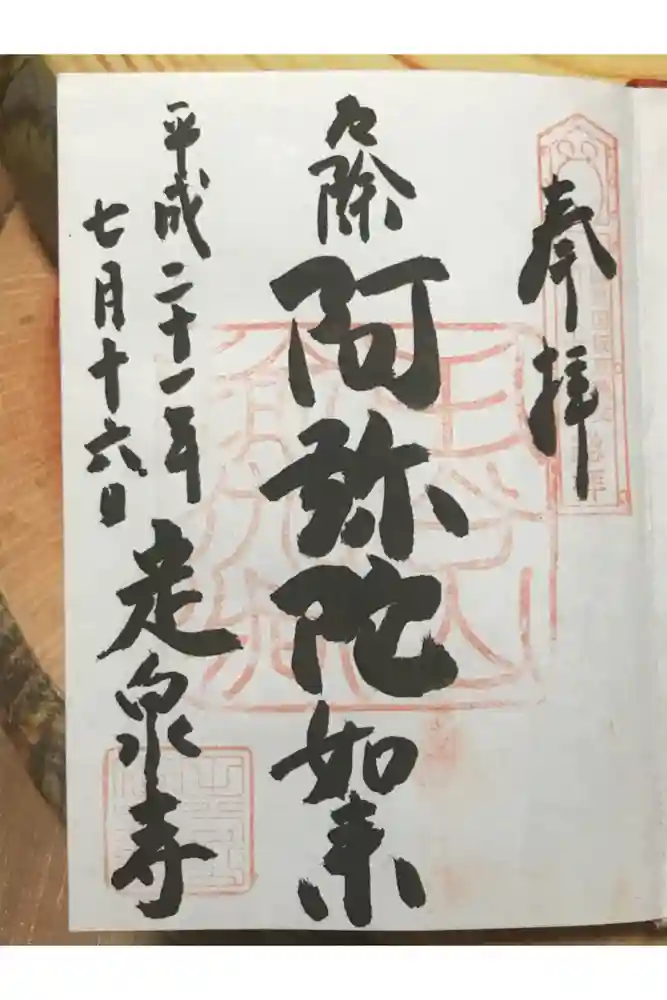 奉拝
厄除 阿弥陀如来
平成二十一年
七月十六日
泉寺